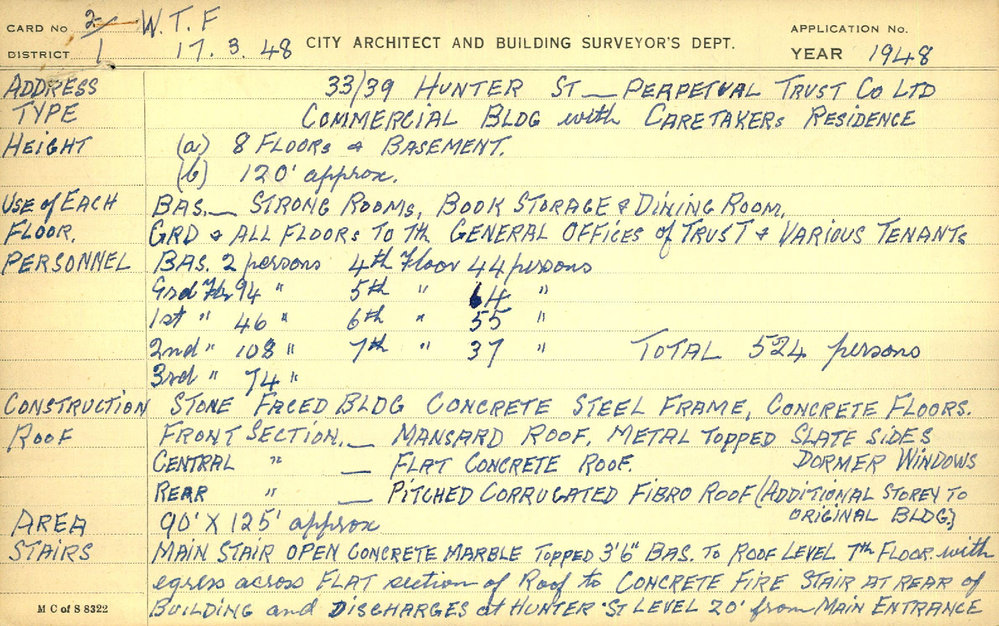 CARD No 2 W.T.F APPLICATION No.
DISTRICT 1 17.3.48 CITY ARCHITECT AND BUILDING SURVEYOR'S DEPT. YEAR 1948
ADDRESS 33/39 HUNTER ST — PERPETUAL TRUST CO LTD
TYPE COMMERCIAL BLDG with CARETAKERS RESIDENCE
HEIGHT (a) 8 FLOORS & BASEMENT.
(b) 120' approx.
USE of EACH BAS. — STRONG ROOMS, BOOK STORAGE & DINING ROOM,
FLOOR. GRD & ALL FLOORS TO 7th GENERAL OFFICES of TRUST & VARIOUS TENANTS
PERSONNEL BAS. 2 persons 4th Floor 44 persons
Grd Flr 94 " 5th " 64 "
1st " 46 " 6th " 55 "
2nd " 108 " 7th " 37 " TOTAL 524 persons
3rd " 74 "
CONSTRUCTION STONE FACED BLDG CONCRETE STEEL FRAME, CONCRETE FLOORS.
ROOF FRONT SECTION. — MANSARD ROOF. METAL TOPPED SLATE SIDES
CENTRAL " — FLAT CONCRETE ROOF. DORMER WINDOWS
REAR " — PITCHED CORRUGATED FIBRO ROOF (ADDITIONAL STOREY TO
ORIGINAL BLDG)
AREA 90' X 125' approx
STAIRS MAIN STAIR OPEN CONCRETE MARBLE TOPPED 3'6" BAS. TO ROOF LEVEL 7th FLOOR. with
egress across FLAT section of Roof to CONCRETE FIRE STAIR AT REAR of
M C of S 8322 BUILDING and DISCHARGES at HUNTER ST LEVEL 20' from MAIN ENTRANCE